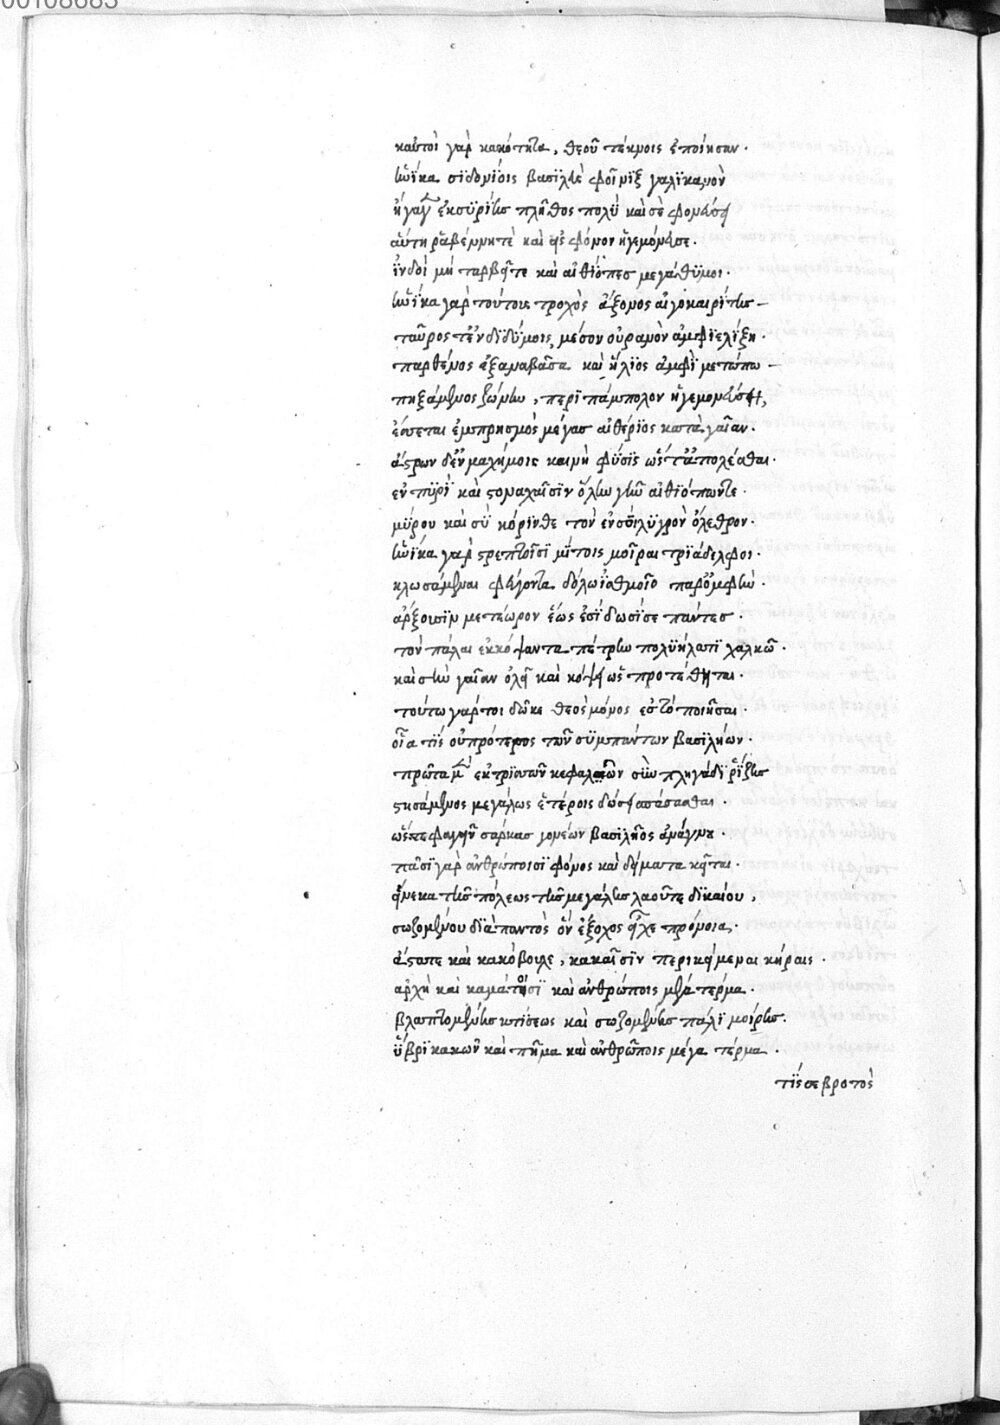 00108683
καὐτοὶ γὰρ κακότητα, θεοῦ τέκνοις ἐποίησαν.
ἡνίκα σϊδονίοις βασιλεὺ φοῖνιξ γαλϊκανὸν
ἤγαγ ἐκσϋρίης πλῆθος πολὺ καὶσὲ φονεύσει
αὕτη ῥαβέννητὲ καὶ εἰς φόνον ἡγεμόνευσε.
ἰνδοὶ μὴ ταρβεῖτε καὶ αἰθίοπεσ μεγάθϋμοι.
ἡνίκα γὰρ τούτοις τροχὸς ἄξονος αἰγοκαιρίτης
ταῦρος τ' ἐν διδύμοις, μέσον οὐρανὸν ἀμφιελίξη.
παρθένος ἐξαναβᾶσα καὶ ἥλϊος ἀμφὶ μετώπω
πηξάμενος ζώνην, περὶ πάμπολον ἡγεμονεύση,
ἔσσεται ἐμπρησμὸς μέγασ αἰθέρϊος κατὰ γαῖαν.
ἄστρων δ' ἐν μαχίμοις καινὴ φύσϊς ὥστ' ἀπολέσθαι.
ἐν πϋρὶ καὶ στοναχαῖσϊν ὅλην γῆν αἰθϊόπωντε.
μύρου καὶ σὺ κόρϊνθε τὸν ἐνσοὶ λϋγρὸν ὄλεθρον.
ἡνίκα γὰρ στρεπτοῖσϊ μΐτοις μοῖραι τρϊάδελφοι.
κλωσάμεναι φεύγοντα δόλω ϊσθμοῖο παρ' ὀμφήν.
ἄρξουσϊν μετέωρον ἕως ἐσίδωσΐσε πάντεσ.
τὸν πάλαι ἐκκόψαντα πέτρην πολϋήλατϊ χαλκῶ.
καὶ σὴν γαῖαν ὀλεῖ καὶ κόψει ὡς προτέθειται.
τούτω γάρτοι δῶκε θεὸς μόνος ἐστὸ ποιῆσαι.
οἷα τΐς οὐπρότερος τῶν σϋμπάντων βασιλήων.
πρῶτα μ ἐκτρϊσσῶν κεφαλῶν σὺν πληγάδι ῥίζης
στησάμενος μεγάλως ἑτέροις δώσει πάσασθαι.
ὥστε φαγεῖν σάρκασ γονέων βασιλῆος ἀνάγνου.
πᾶσϊ γὰρ ἀνθρώποισϊ φόνος καὶ δείματα κεῖται.
εἵνεκα τῆς πόλεως τῆς μεγάλης λαοῦτε δικαίου,
σωζομένου διὰπαντὸς ὃν ἔξοχος εἶχε πρόνοια.
ἄστατε καὶ κακόβουλε, κακαῖσϊν περικείμεναι κήραις.
ἀρχὴ καὶ καμάτοισϊ καὶ ἀνθρώποις μέγα τέρμα.
βλαπτομένης κτίσεως καὶ σωζομένης πάλϊ μοίρης.
ὕβρϊ κακῶν καὶ πῆμα καὶ ἀνθρώποις μέγα τέρμα.
τΐς σε βροτὸς